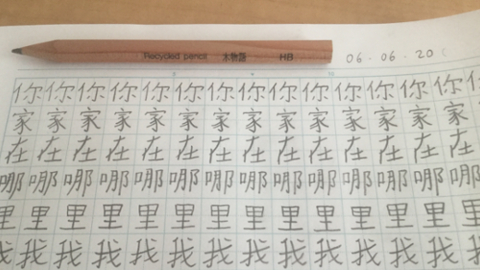 Recycled pencil 木物語 HB
06.06.20
你你你你你你你你你你你你你你你
家家家家家家家家家家家家家家
在在在在在在在在在在在在在在
哪哪哪哪哪哪哪哪哪哪哪哪哪哪
里里里里里里里里里里里里里里
我我我我我我我我我我我我我